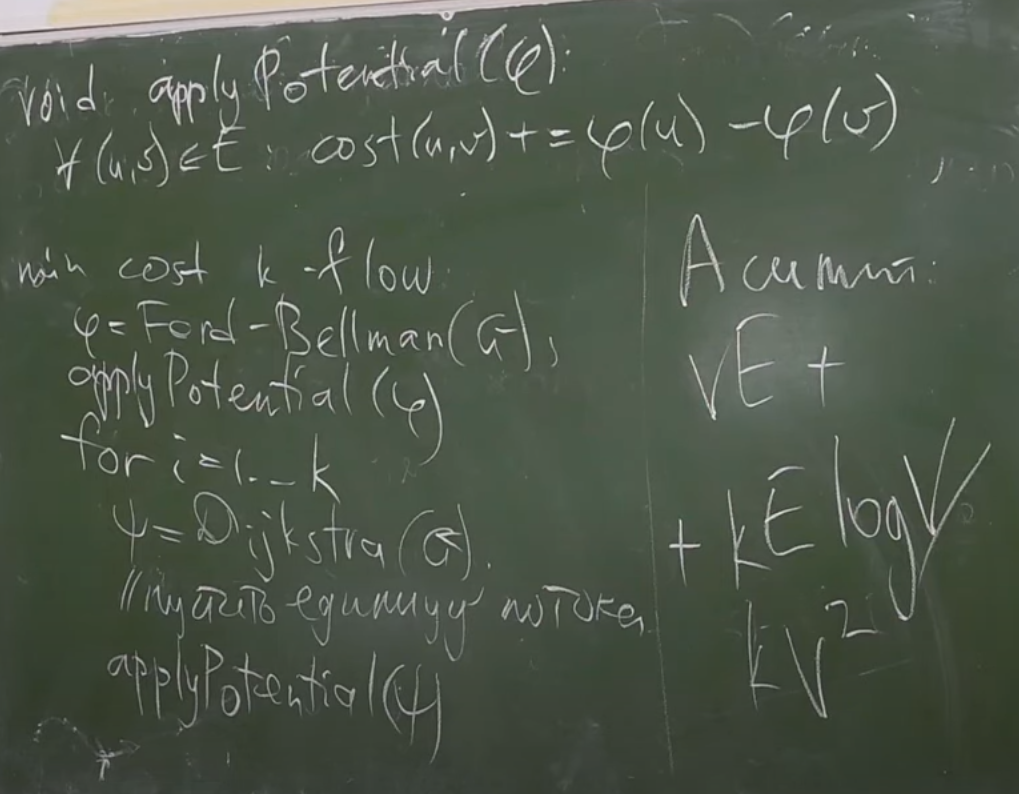 void applyPotential(φ):
∀(u,v)∈E: cost(u,v) += φ(u) - φ(v)
min cost k-flow:
φ = Ford-Bellman(G);
applyPotential(φ)
for i=1..k
ψ = Dijkstra(G).
//пустить единицу потока
applyPotential(ψ)
Асимпт:
VE +
+ kE log V
kV²